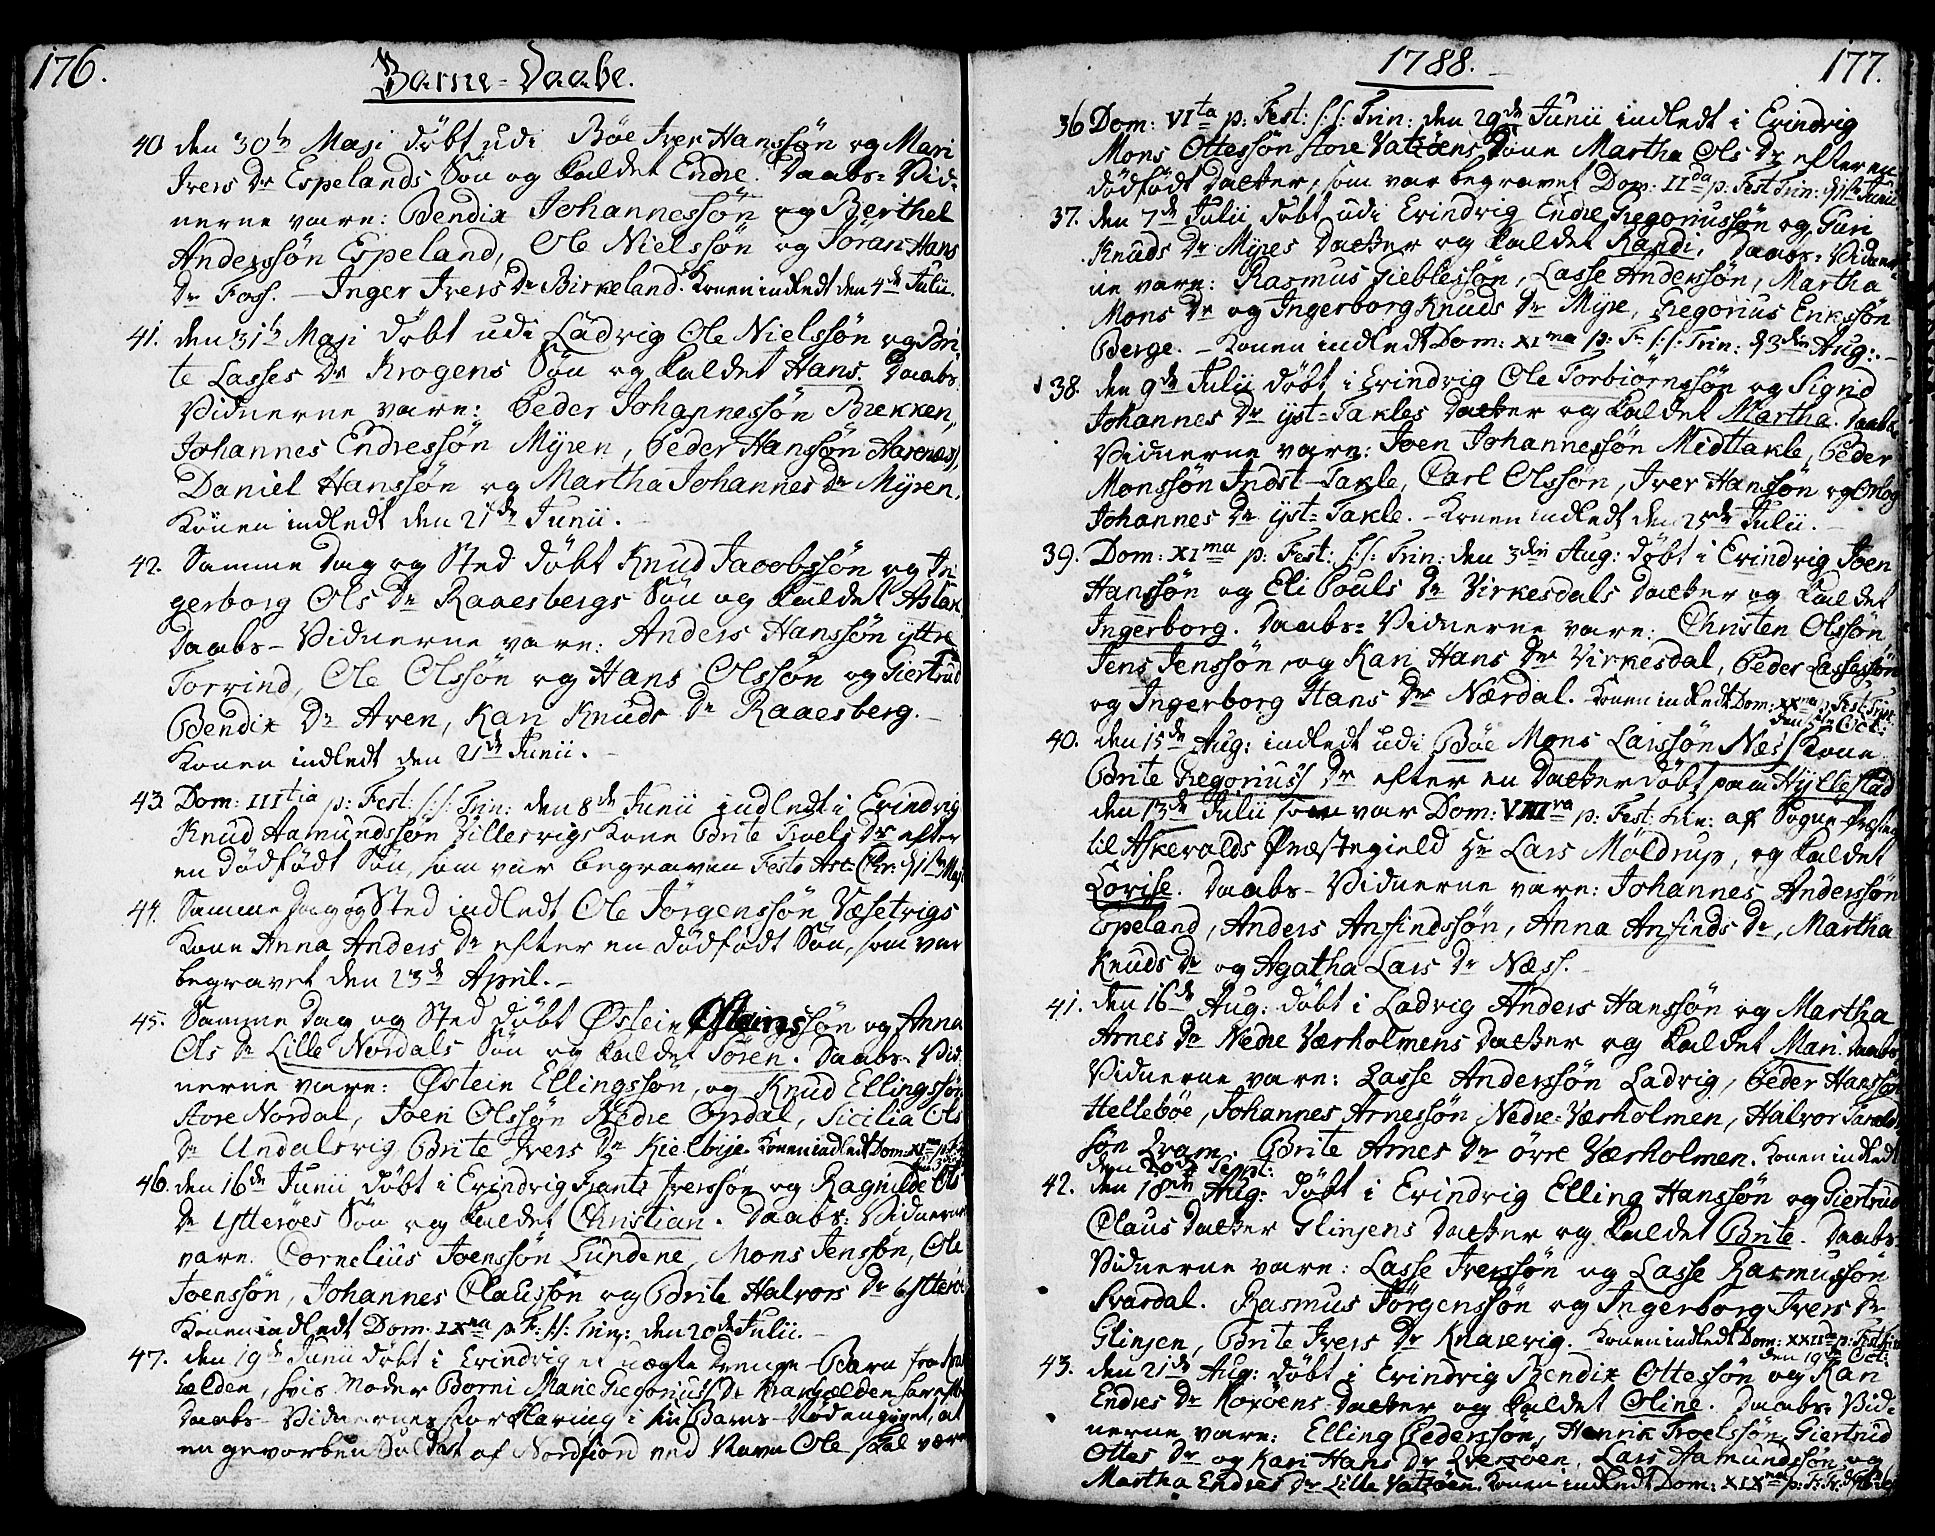 176.
Barne-Daabe.
40 den 30te Maji döbt udi Böe Iver Hanssön og Mari
Ivers Dr Espelands Sön og kaldet Endre. Daabs-Vid-
nerne vare: Bendix Johannessön og Berthel
Anderssön Espeland, Ole Nielssön og Jöran Hans
Dr Foss. - Inger Ivers Dr Birkeland. Konen indledt den 4de Julii.
41. den 31te Maji döbt udi Ladvig Ole Nielssön og Bri-
te Lasses Dr Krogens Sön og kaldet Hans. Daabs-
Vidnerne vare: Peder Johannessön Brekken,
Johannes Endressön Myren, Peder Hanssön
Daniel Hanssön og Martha Johannes Dr Myren.
Konen indledt den 21de Junii.
42. Samme Dag og Sted döbt Knud Jacobssön og In-
gerborg Ols Dr Raaesbergs Sön og kaldet Aslak
Daabs-Vidnerne vare: Anders Hanssön yttre
Torvind, Ole Olssön og Hans Olssön og Giertrud
Bendix Dr Aven, Kari Knuds Dr Raaesberg.-
Konen indledt den 21de Junii.-
43. Dom: IIItia p: Fest: S:S: Trin: den 8de Junii indledt i Evindvig
Knud Aamundssön Hillersvigs Kone Brite Troels Dr efter
en dödfödt Sön, som var begraven Festo Asc: Chr: d 1ste Maji
44. Samme Dag og Sted indledt Ole Jörgenssön Væsetvigs
Kone Anna Anders Dr efter en dödfödt Sön, som var
begravet den 23de April.-
45. Samme Dag og Sted döbt Østein Østeinssön og Anna
Ols Dr Lille Nordals Sön og kaldet Sören. Daabs-Vid-
nerne vare: Østein Ellingssön, og Knud Ellingssön
store Nordal, Joen Olssön Nedre Opdal, Sicilia Ols
Dr Undalsvig Brite Ivers Dr Kielbye. Konen indledt Dom: XIma
46. den 16de Junii döbt i Evindvig Frants Iverssön og Ragnilde Ols
Dr Ytteröes Sön og kaldet Christian. Daabs-Vidnerne
vare. Cornelius Joenssön Lundene, Mons Jenssön, Ole
Joenssön, Johannes Claussön og Brite Halvors Dr Ytteröe
Konen indledt Dom: IXna p: F: S:S: Trin: den 20de Julii.-
47. den 19de Junii döbt i Evindvig et uægte Drenge-Barn fra
hvis Moder Borni Marie Gregoriuss Dr
Daabs-Vidnernes forklaring i sin Barns-Nød angivet, at
en gevorben Soldat af Nordfiord ved Navn Ole skal være
1788.-
177.
36 Dom: VIta p: Fest: S:S: Trin: den 29de Junii indledt i Evindvig
Mons Ottessön store Vatzöens Kone Martha Ols Dr efter en
dödfödt Datter, som var begravet Dom: IIda p: Fest Trin: d 1ste Junii
37. den 7de Julii döbt udi Evindvig Endre Gregoriussön og Guri
Knuds Dr Myres Datter og kaldet Randi. Daabs-Vidner-
ne vare: Rasmus Gieblessön, Lasse Anderssön, Martha
Mons Dr og Ingerborg Knuds Dr Myre, Gregorius Erikssön
Berge. - Konen indledt Dom: XIma p: F: S:S: Trin: d 3die Aug:-
38. den 9de Julii döbt i Evindvig Ole Torbiörnssön og Sigrid
Johannes Dr yst-Takles Datter og kaldet Martha. Daabs-
Vidnerne vare: Joen Johannessön Midttakle, Peder
Monssön Indst-Takle, Carl Olssön, Iver Hanssön og
Johannes Dr yst-Takle. - Konen indledt den 25de Julii.-
39. Dom: XIma p: Fest: S:S: Trin: den 3die Aug: döbt i Evindvig Joen
Hanssön og Eli Pouls Dr Virkesdals Datter og kaldet
Ingerborg. Daabs-Vidnerne vare: Christen Olssön
Jens Jenssön, og Kari Hans Dr Virkesdal, Peder Lassessön
og Ingerborg Hans Dr Nærdal. Konen indledt Dom: XXma p: Fest: Trin:
den 5te Oct:
40. den 15de Aug: indledt udi Böe Mons Larssön Næss Kone
Brite Gregoriuss Dr efter en Datter döbt paa Hyllestad
den 13de Julii som var Dom: VIIIva p: Fest: Trin: af Sogne-Præsten
til Askevolds Præstegield Hr Lars Möldrup, og kaldet
Lovise. Daabs-Vidnerne vare: Johannes Anderssön
Espeland, Anders Anfindssön, Anna Anfinds Dr, Martha
Knuds Dr og Agatha Lars Dr Næss.
41. den 16de Aug: döbt i Ladvig Anders Hanssön og Martha
Arnes Dr Nedre Værholmens Datter og kaldet Mari. Daabs-
Vidnerne vare: Lasse Anderssön Ladvig, Peder Hanssön
Hellebøe, Johannes Arnessön Nedre-Værholmen, Halvor
sön Qvam. Brite Arnes Dr övre Værholmen. Konen indledt
den 20de Sept:
42. den 18de Aug: döbt i Evindvig Elling Hanssön og Giertrud
Claus Datter Glinjens Datter og kaldet Brite. Daabs-
Vidnerne vare: Lasse Iverssön og Lasse Rasmussön
Svardal. Rasmus Jörgenssön og Ingerborg Ivers Dr
Glinjen, Brite Ivers Dr Knarvig. Konen indledt Dom: XXIIda p: Fest:
den 19de Oct:
43. den 21de Aug: döbt i Evindvig Bendix Ottessön og Kari
Endres Dr Koxöens Datter og kaldet Oline. Daabs-Vid-
nerne vare: Elling Pederssön, Henrik Troelssön, Giertrud
Ottes Dr og Kari Hans Dr Qverzöen, Lars Aamundssön og
Martha Endres Dr Lille Vatzöen. Konen indledt Dom: XIXna p: F: Tr: